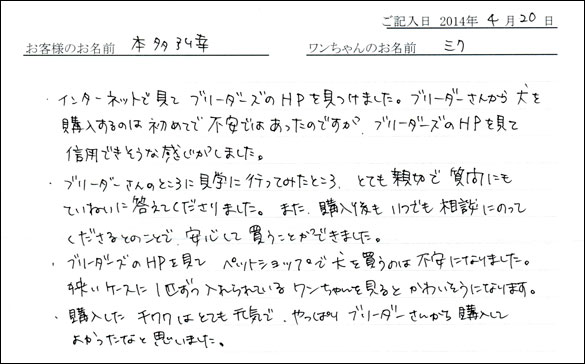 ご記入日 2014年 4月 20日
お客様のお名前 本多弘幸 ワンちゃんのお名前 ミク
・インターネットで見て ブリーダーズのHPを見つけました。ブリーダーさんから犬を
購入するのは初めてで不安ではあったのですが、ブリーダーズのHPを見て
信用できそうな感じがしました。
・ブリーダーさんのところに見学に行ってみたところ、とても親切で質問にも
ていねいに答えてくださりました。また、購入後もいつでも相談にのって
くださるとのことで、安心して買うことができました。
・ブリーダーズのHPを見て ペットショップで犬を買うのは不安になりました。
狭いケースに1匹ずつ入れられているワンちゃんを見るとかわいそうになります。
・購入したチワワはとても元気で、やっぱりブリーダーさんから購入して
よかったなと思いました。